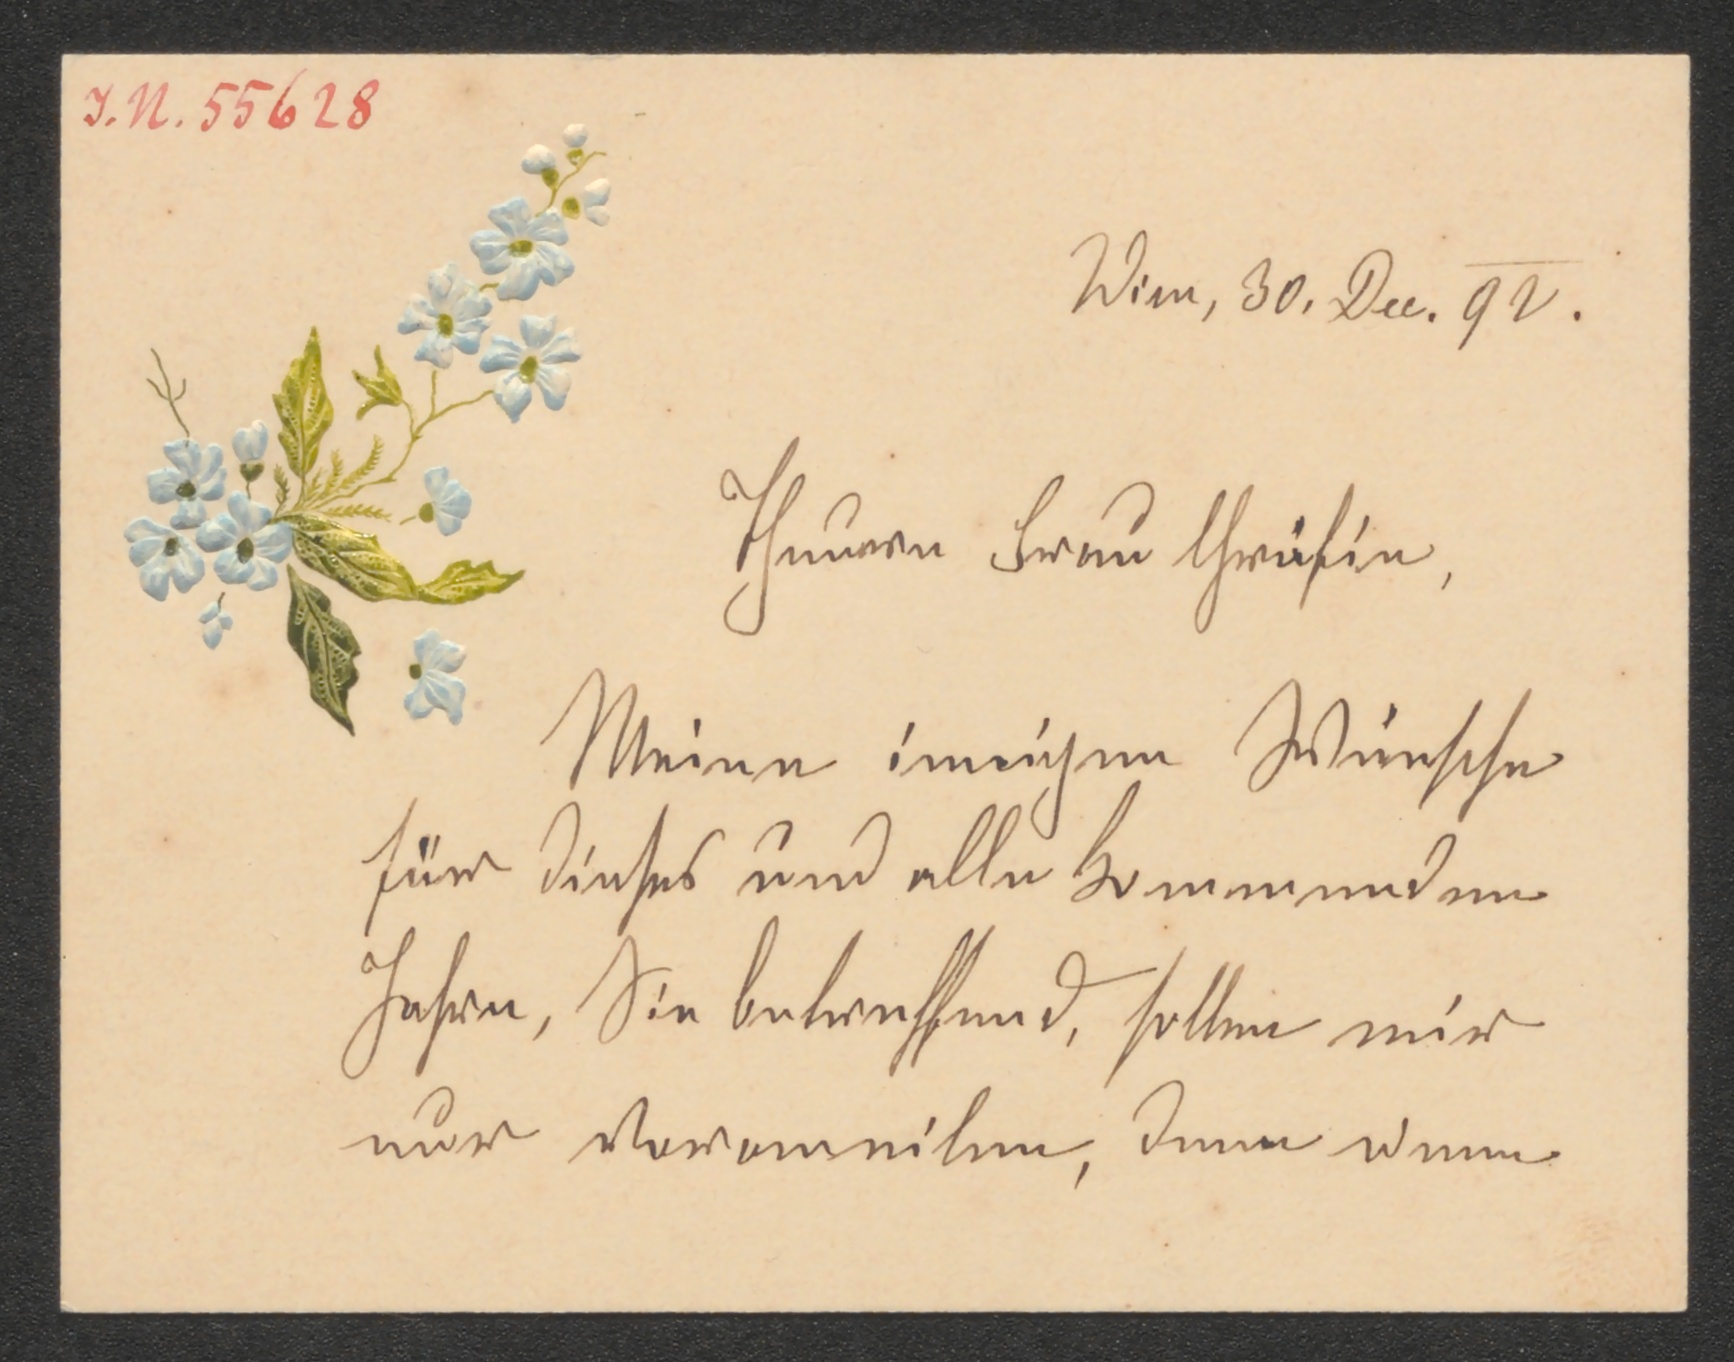 J.N. 55628
Wien, 30. Dec. 92.
Theuere Frau Gräfin,
Meine innigen Wünsche
für dieses und alle kommenden
Jahre, Sie betreffend, sollen mir
nur voraneilen, denn wenn